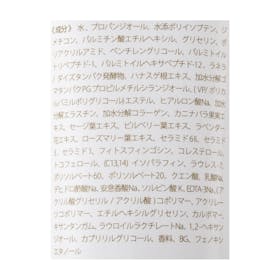 《成分》 水、プロパンジオール、水添ポリイソブテン、ジ
メチコン、パルミチン酸エチルヘキシル、グリセリン、ポ
リアクリルアミド、ペンチレングリコール、パルミトイル
トリペプチド-1、パルミトイルヘキサペプチド-12、ラネラ
ダイズタンパク発酵物、ハナスゲ根エキス、加水分解コ
マンタンパクPGプロピルメチルシランジオール、(VP/ポリ
カルバミルポリグリコール)エステル、ヒアルロン酸Na、加
水分解エラスチン、加水分解コラーゲン、カニナバラ果実エ
キス、セージ葉エキス、ビルベリー葉エキス、ラベンダー
花エキス、ローズマリー葉エキス、セラミド6Ⅱ、セラミド
セラミド1、フィトスフィンゴシン、コレステロール、
トコフェロール、(C13,14)イソパラフィン、ラウレス-
ポリソルベート60、ポリソルベート20、クエン酸、乳酸Na
デヒドロ酢酸Na、安息香酸Na、ソルビン酸K、EDTA-3Na、(ア
クリル酸グリセリル/アクリル酸)コポリマー、アクリレー
コポリマー、エチルヘキシルグリセリン、カルボマー
キサンタンガム、ラウロイルラクチレートNa、1,2-ヘキサン
ジオール、カプリリルグリコール、香料、BG、フェノキシ
エタノール